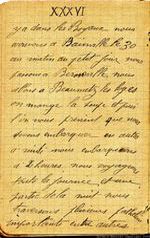 XXXVI
ya dans les Boyaux nous
arrivons à Bainville le 30
au matin au petit jour nous
passons à Berneville nous
allons à Beaumetz les Loges
on mange la soupe et puis
l'on nous prévient que nous
devons embarquer en auto
à midi nous embarquons
à 2 heures, nous voyageons
toute la journée et une
partie de la nuit nous
traversons plusieurs
importants entre autres